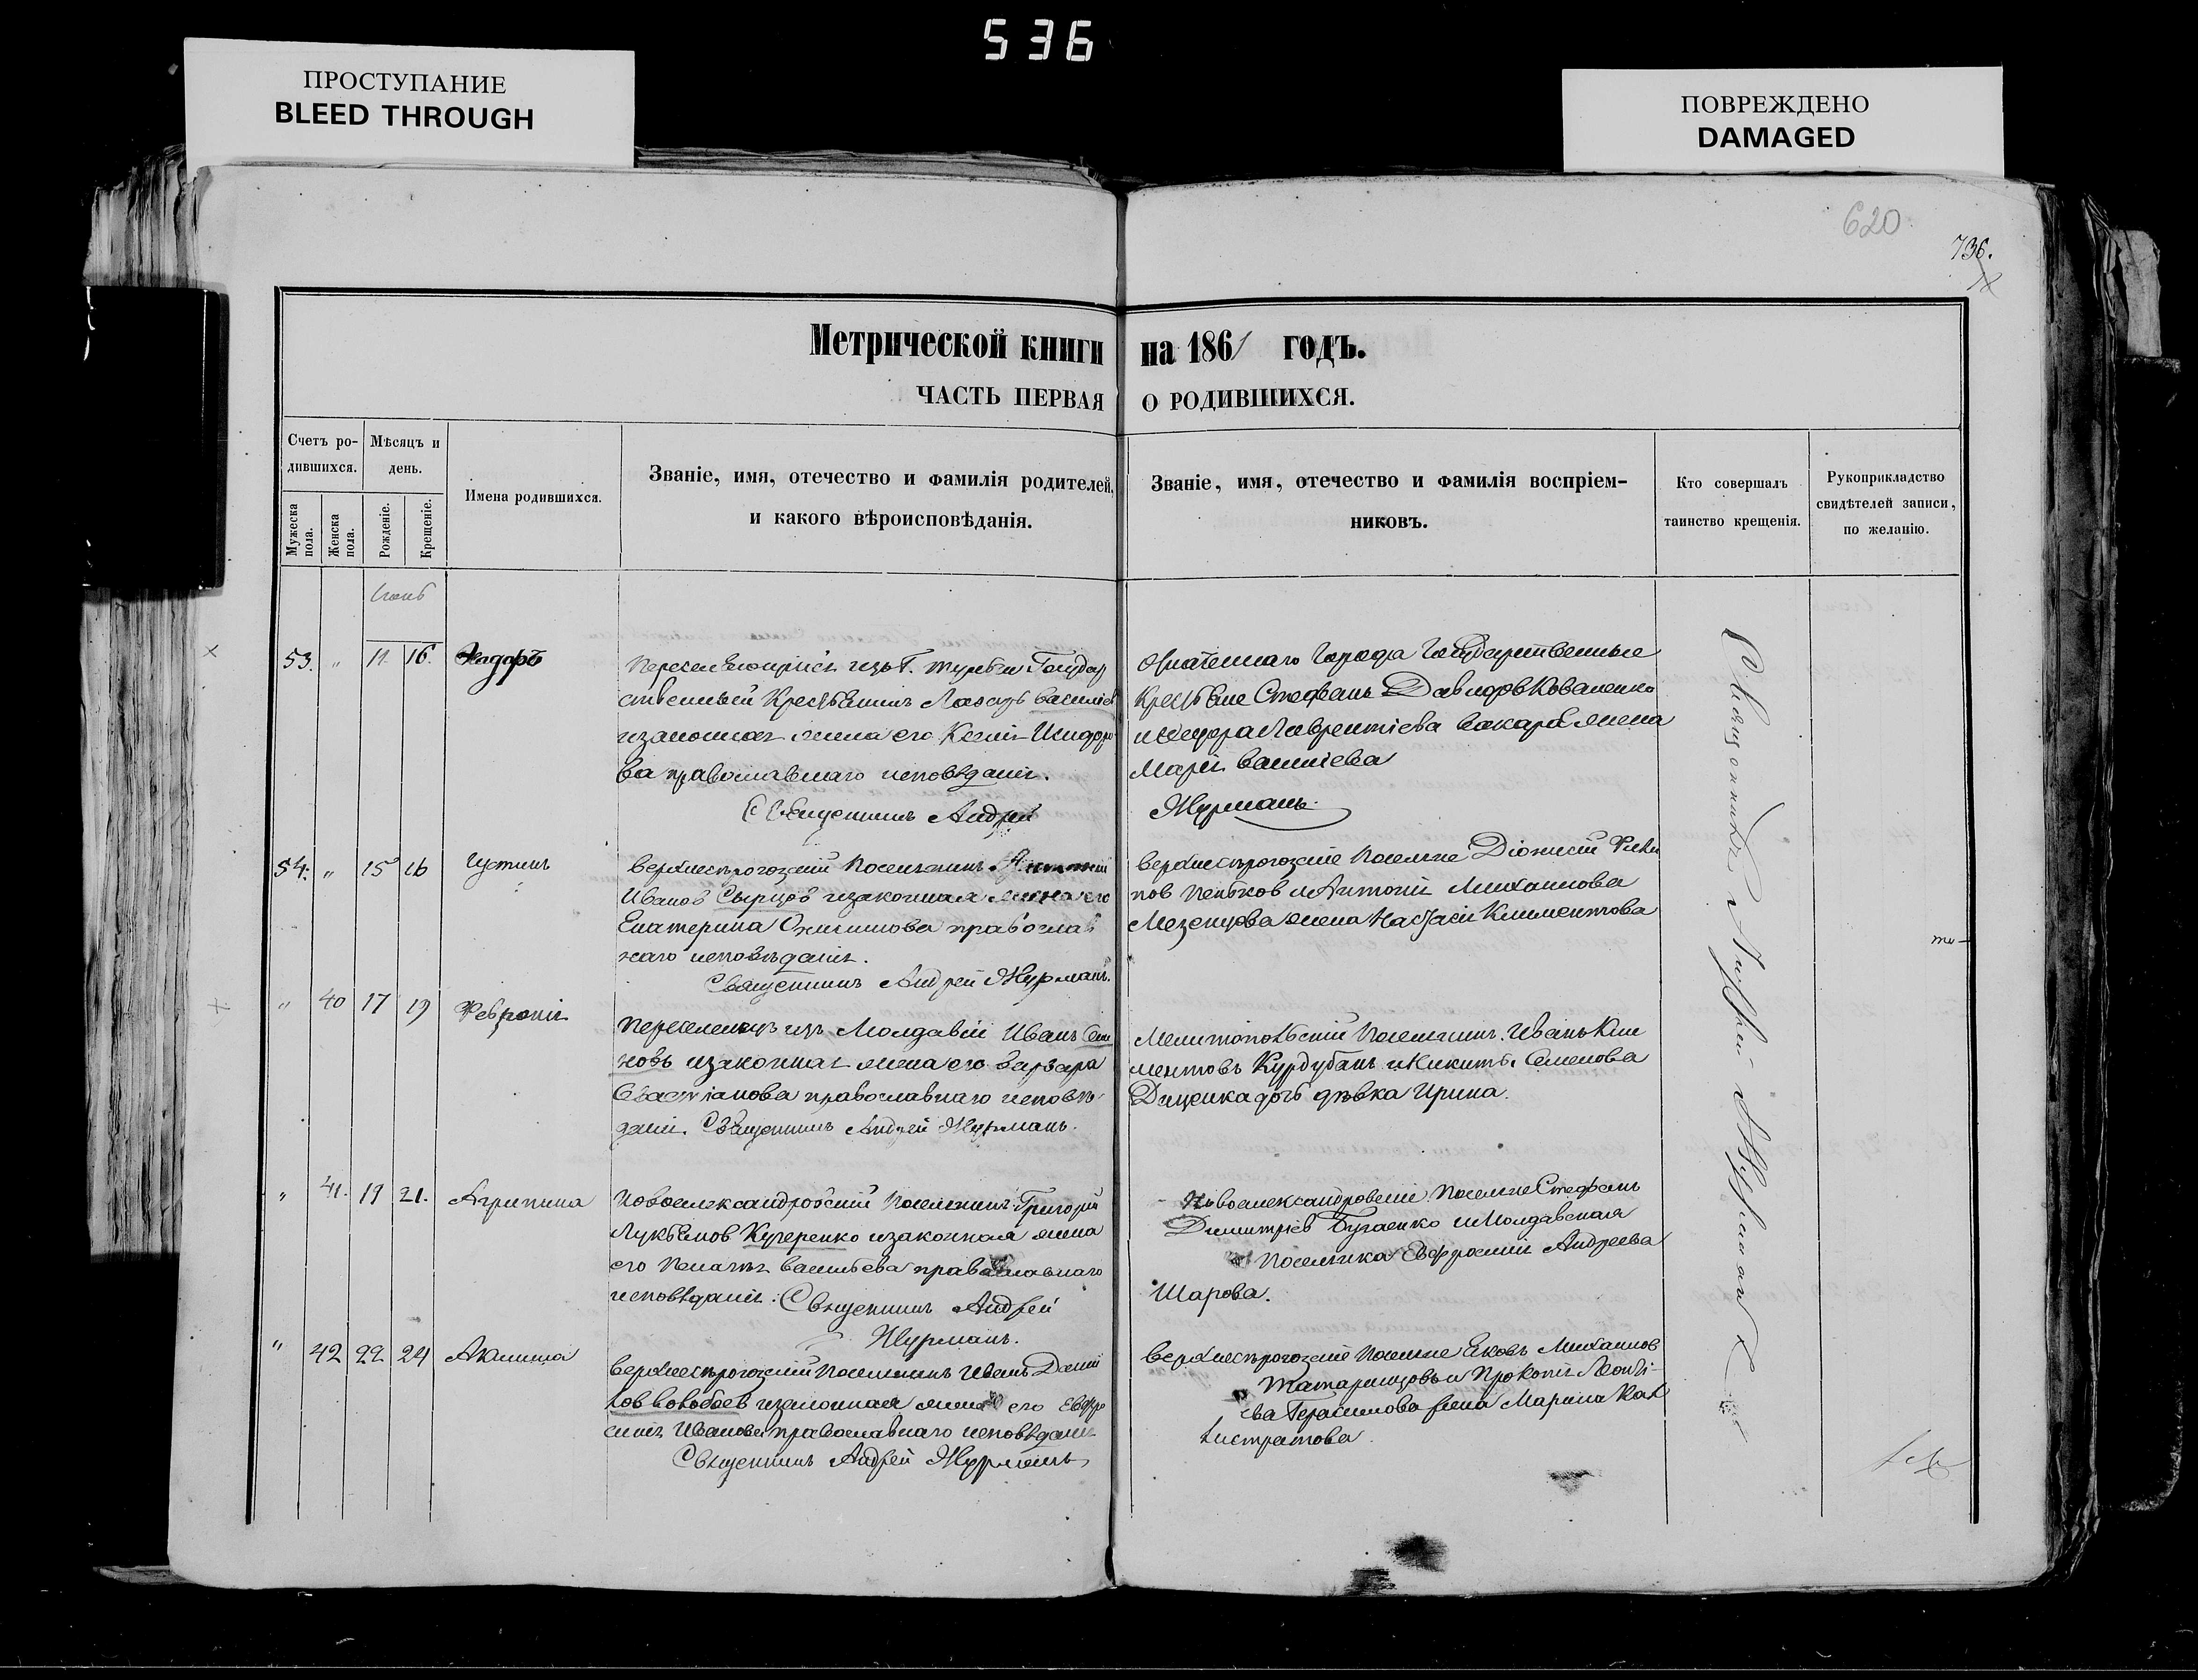 536
ПРОСТУПАНИЕ
BLEED THROUGH
ПОВРЕЖДЕНО
DAMAGED
620
736.
Метрической книги на 1861 годъ.
ЧАСТЬ ПЕРВАЯ О РОДИВШИХСЯ.
Счетъ ро-
дившихся.
Мужеска
пола.
Женска
пола.
Мѣсяцъ и
день.
Рожденіе.
Крещеніе.
Имена родившихся.
Званіе, имя, отечество и фамилія родителей,
и какого вѣроисповѣданія.
Званіе, имя, отечество и фамилія воспріем-
никовъ.
Кто совершалъ
таинство крещенія.
Рукоприкладство
свидѣтелей записи,
по желанію.
53. " 11. 16.
Государ
ственный Крестьянинъ Лазарь Василіев
изаконная жена его
ва православнаго исповѣданія.
Священникъ Андрей
города Государственные
Крестьяне Стефанъ Давидов Коваленко
Лаврентіева жена
Марія Василіева
Журманъ.
54. " 15 16 Иустинъ
Верхнесѣрогозскій Поселянинъ
Иванов Сырцов изаконная жена его
Екатерина православ
наго исповѣданія.
Священникъ Андрей Журманъ.
Верхнесѣрогозскіе Поселяне Діонисій Фили
пов и Антонія Михаилова
Мезенцова жена Настасія Климентова
" 40 17 19 Февронія
Переселенецъ изъ Молдавіи Иванъ
новъ изаконная жена его Варвара
православнаго исповѣ
данія. Священникъ Андрей Журманъ.
Мелитопольскій Поселянинъ Иванъ Кли
ментовъ Курдубанъ и Никиты Семенова
Диценка дочь дѣвка Ирина.
" 41. 19 21. Агрипина
Новоалександровскій Поселянинъ Григорій
Лукьянов Кучеренко изаконная жена
его Пелагія Васильева православнаго
исповѣданія. Священникъ Андрей
Журманъ.
Новоалександровскіе Поселяне Стефанъ
Димитріев Бугаенко и Молдавская
Поселянка Евфросинія Андреева
Шарова.
" 42 22 24 Акилина
Верхнесѣрогозскій Поселянинъ Иванъ Дани
лов изаконная жена его Евфро
синія Иванова православнаго исповѣданія
Священникъ Андрей Журманъ
Верхнесѣрогозскіе Поселяне Яковъ Михаилов
Татаринцовъ и Прокопія Леонті
ева Герасимова жена Марина Кал
листратова.
Священникъ Андрей Журманъ